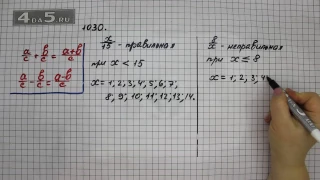 4DA5.RU
1030.
a/c + b/c = (a+b)/c
a/c - b/c = (a-b)/c
x/15 - правильная
при x < 15
x = 1; 2; 3; 4; 5; 6; 7;
8; 9; 10; 11; 12; 13; 14.
8/x - неправильная
при x ≤ 8
x = 1; 2; 3; 4